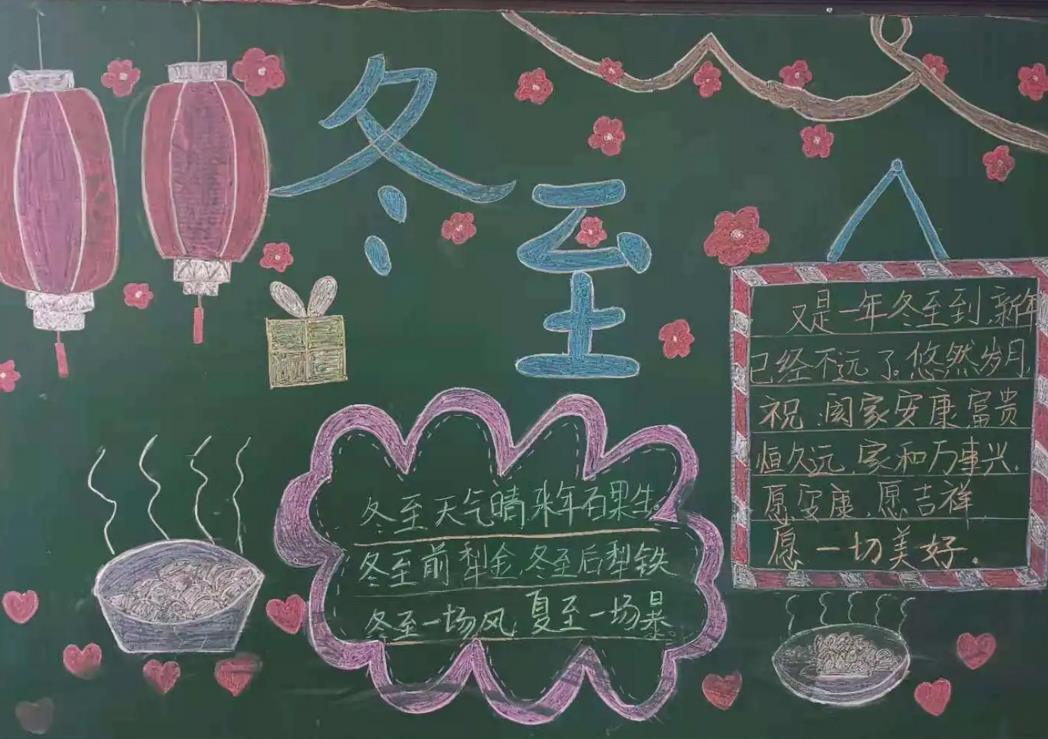 冬至
冬至天气晴,来年百果生。
冬至前犁金,冬至后犁铁
冬至一场风,夏至一场暴。
又是一年冬至到,新年
已经不远了。悠然岁月,
祝,阖家安康,富贵
恒久远,家和万事兴,
愿安康,愿吉祥,
愿一切美好。